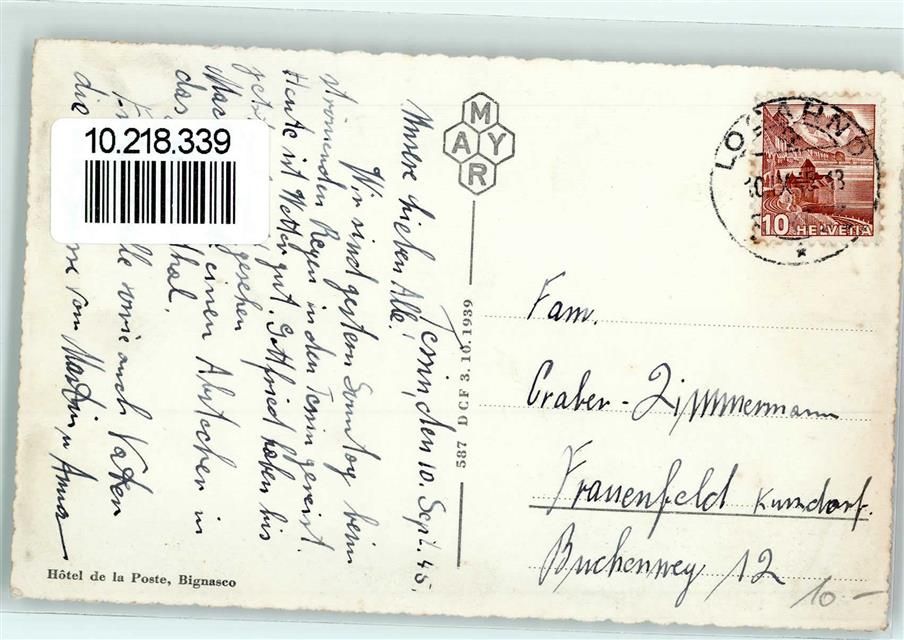 10.218.339
MAYR
LOCARNO
10. IX. 45. 18
10 HELVETIA
Tessin, den 10. Sept. 45.
Unsere lieben Alle!
Wir sind gestern Sonntag beim
strömenden Regen in den Tessin gereist.
Heute ist Wetter gut. Gottfried haben bis
jetzt gesehen
einen Abstecher in
das thal.
wie auch Vatter
die von Martin u Anna
587 DCF 3.10.1939
Hôtel de la Poste, Bignasco
Fam.
Graber-Zimmermann
Frauenfeld Kurzdorf.
Buchenweg 12
10 -